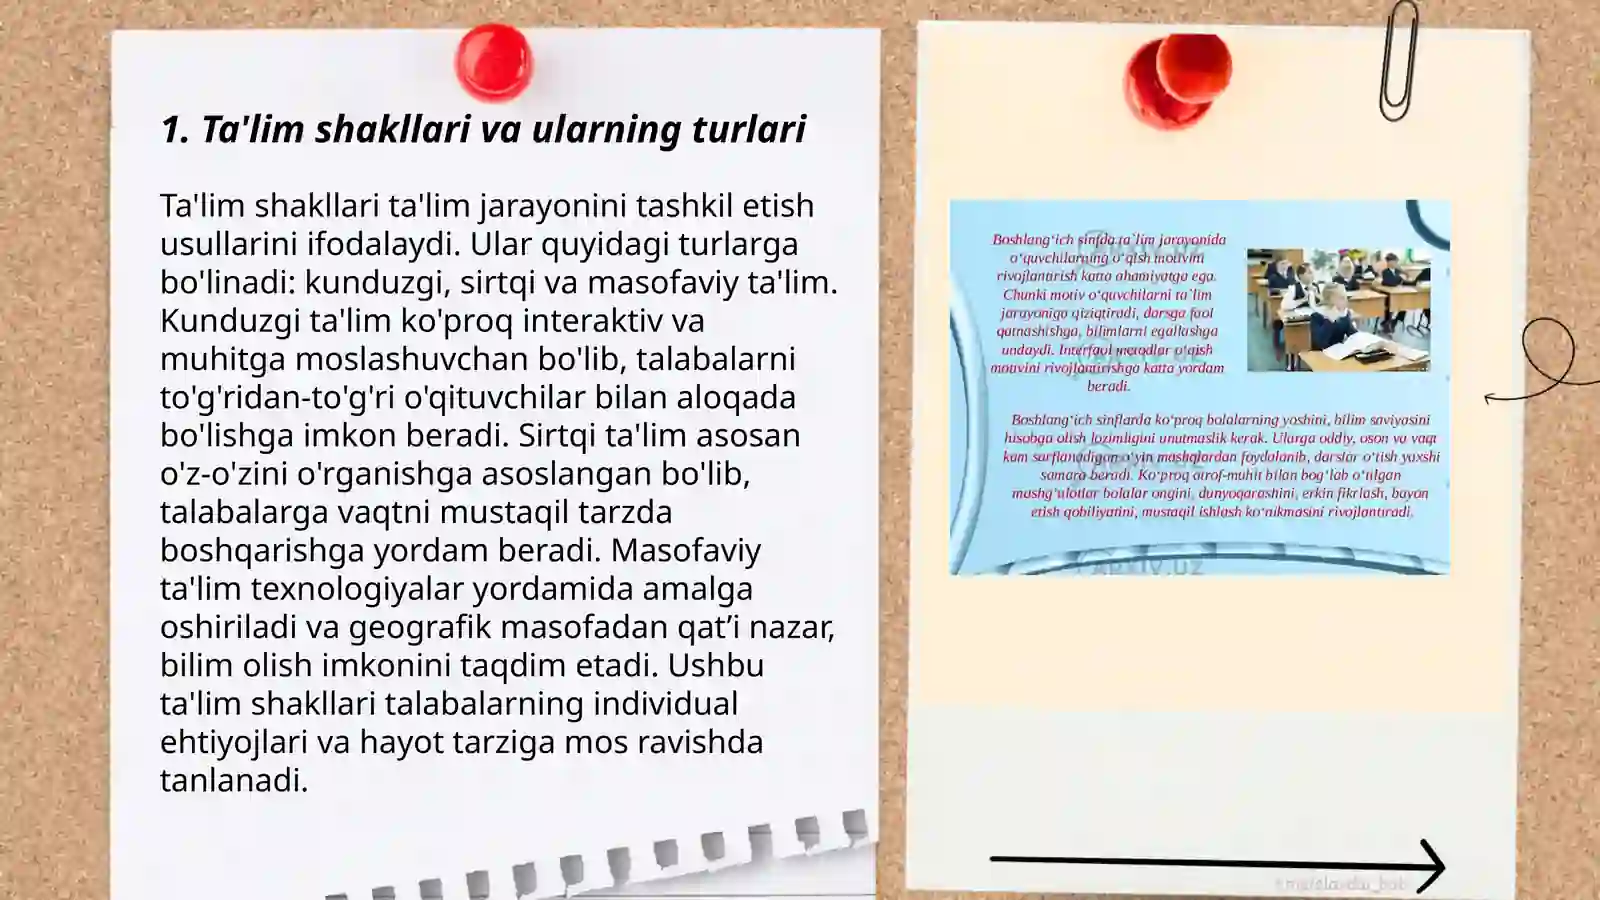 1. Ta'lim shakllari va ularning turlari
Ta'lim shakllari ta'lim jarayonini tashkil etish
usullarini ifodalaydi. Ular quyidagi turlarga
bo'linadi: kunduzgi, sirtqi va masofaviy ta'lim.
Kunduzgi ta'lim ko'proq interaktiv va
muhitga moslashuvchan bo'lib, talabalarni
to'g'ridan-to'g'ri o'qituvchilar bilan aloqada
bo'lishga imkon beradi. Sirtqi ta'lim asosan
o'z-o'zini o'rganishga asoslangan bo'lib,
talabalarga vaqtni mustaqil tarzda
boshqarishga yordam beradi. Masofaviy
ta'lim texnologiyalar yordamida amalga
oshiriladi va geografik masofadan qat’i nazar,
bilim olish imkonini taqdim etadi. Ushbu
ta'lim shakllari talabalarning individual
ehtiyojlari va hayot tarziga mos ravishda
tanlanadi.
Boshlang‘ich sinfda ta`lim jarayonida
o‘quvchilarning o‘qish motivini
rivojlantirish katta ahamiyatga ega.
Chunki motiv o‘quvchilarni ta`lim
jarayoniga qiziqtiradi, darsga faol
qatnashishga, bilimlarni egallashga
undaydi. Interfaol metodlar o‘qish
motivini rivojlantirishga katta yordam
beradi.
Boshlang‘ich sinflarda ko‘proq bolalarning yoshini, bilim saviyasini
hisobga olish lozimligini unutmaslik kerak. Ularga oddiy, oson va vaqt
kam sarflanadigan o‘yin mashqlardan foydalanib, darslar o‘tish yaxshi
samara beradi. Ko‘proq atrof-muhit bilan bog‘lab o‘tilgan
mashg‘ulotlar bolalar ongini, dunyoqarashini, erkin fikrlash, bayon
etish qobiliyatini, mustaqil ishlash ko‘nikmasini rivojlantiradi.
ARXIV.UZ